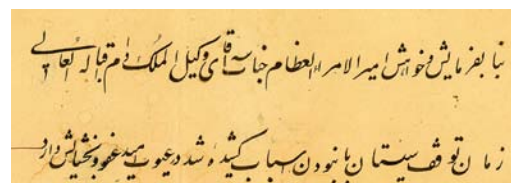 بنا بفرمایش و خواهش امیر الامراء العظام جناب آقای وکیل الملک دام اقباله العالی
زمان توقف سیستان با نبودن اسباب کشیده شد در عیوب امید عفو و بخشایش دارد